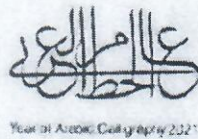 عام الخط العربي
Year of Arabic Calligraphy 2021